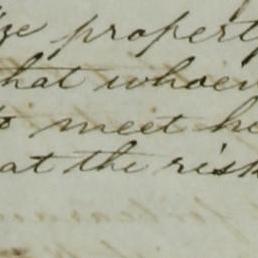 ze property
that whoev
to meet he
at the risk